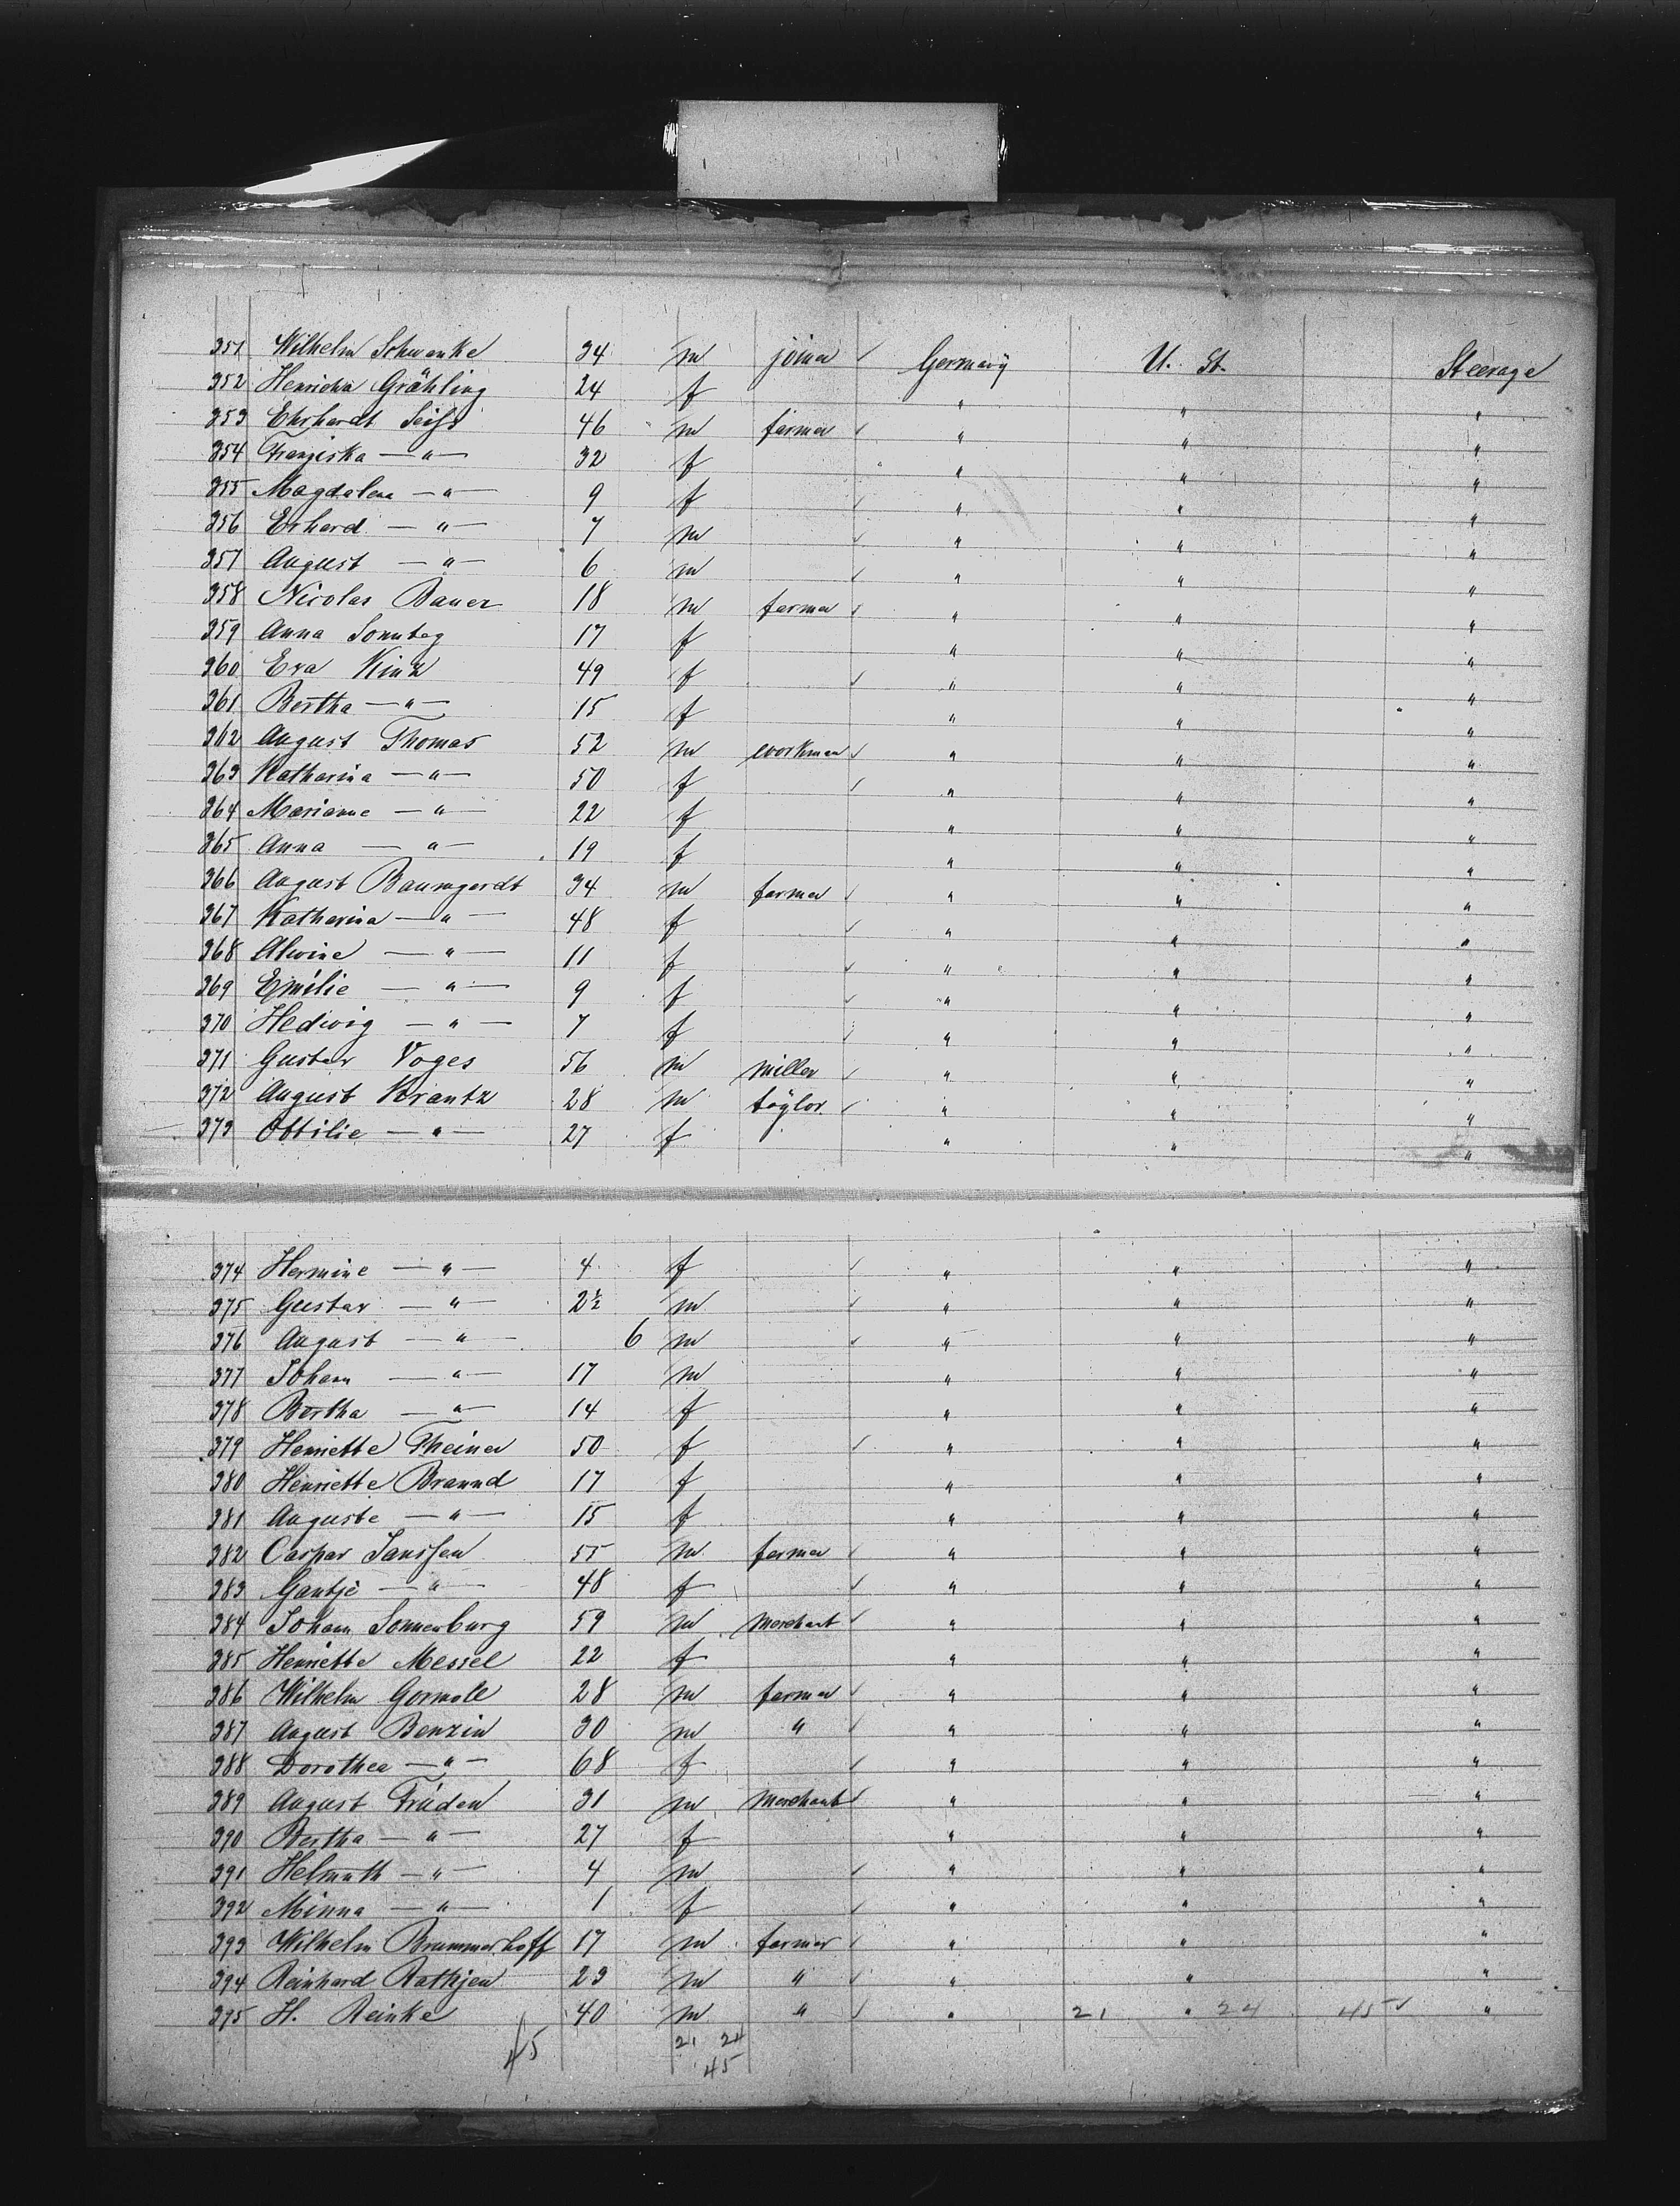 351 Wilhelm Schwanke 34 m joiner ✓ Germany U. St. Steerage
352 Grähling 24 f " " "
353 Ehrhardt Seiſs 46 m farmer ✓ " " "
354 Franziska — " — 32 f " " "
355 Magdalena — " — 9 f ✓ " " "
356 Erhard — " — 7 m ✓ " " "
357 August — " — 6 m ✓ " " "
358 Nicolas Bauer 18 m farmer ✓ " " "
359 Anna Sonntag 17 f " " "
360 Eva Kinz 49 f ✓ " " "
361 Bertha — " — 15 f " " "
362 August Thomas 52 m workman ✓ " " "
363 Katharina — " — 50 f ✓ " " "
364 Marianne — " — 22 f " " "
365 Anna — " — 19 f " " "
366 August Baumgardt 34 m farmer ✓ " " "
367 Katharina — " — 48 f ✓ " " "
368 Alwine — " — 11 f ✓ " " "
369 Emilie — " — 9 f ✓ " " "
370 Hedwig — " — 7 f ✓ " " "
371 Gustav Voges 56 m miller ✓ " " "
372 August Krantz 28 m taylor ✓ " " "
373 Ottilie — " — 27 f " " "
374 Hermine — " — 4 f ✓ " " "
375 Gustav — " — 2½ m ✓ " " "
376 August — " — 6 m ✓ " " "
377 Johann — " — 17 m " " "
378 Bertha — " — 14 f " " "
379 Henriette Theiner 50 f ✓ " " "
380 Henriette Brannd 17 f " " "
381 Auguste — " — 15 f " " "
382 Caspar Janſsen 55 m farmer ✓ " " "
383 Gantje — " — 48 f ✓ " " "
384 Johann Sonnenburg 59 m merchant ✓ " " "
385 Henriette Messel 22 f " " "
386 Wilhelm Gormoll 28 m farmer ✓ " " "
387 August Benzin 30 m " ✓ " " "
388 Dorothea — " — 68 f ✓ " " "
389 August Früden 31 m merchant ✓ " " "
390 Bertha — " — 27 f " " "
391 Helmuth — " — 4 m ✓ " " "
392 Minna — " — 1 f ✓ " " "
393 Wilhelm Brummerhoff 17 m farmer ✓ " " "
394 Reinhard Rathjen 23 m " ✓ " " "
395 H. Reinke 40 m " ✓ " 21 " 24 45 ✓ "
45 21 24
45